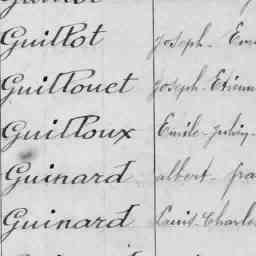 Guillot Joseph-
Guillouet Joseph-Etienn
Guilloux Emile-
Guinard albert-fra
Guinard Louis-Charle